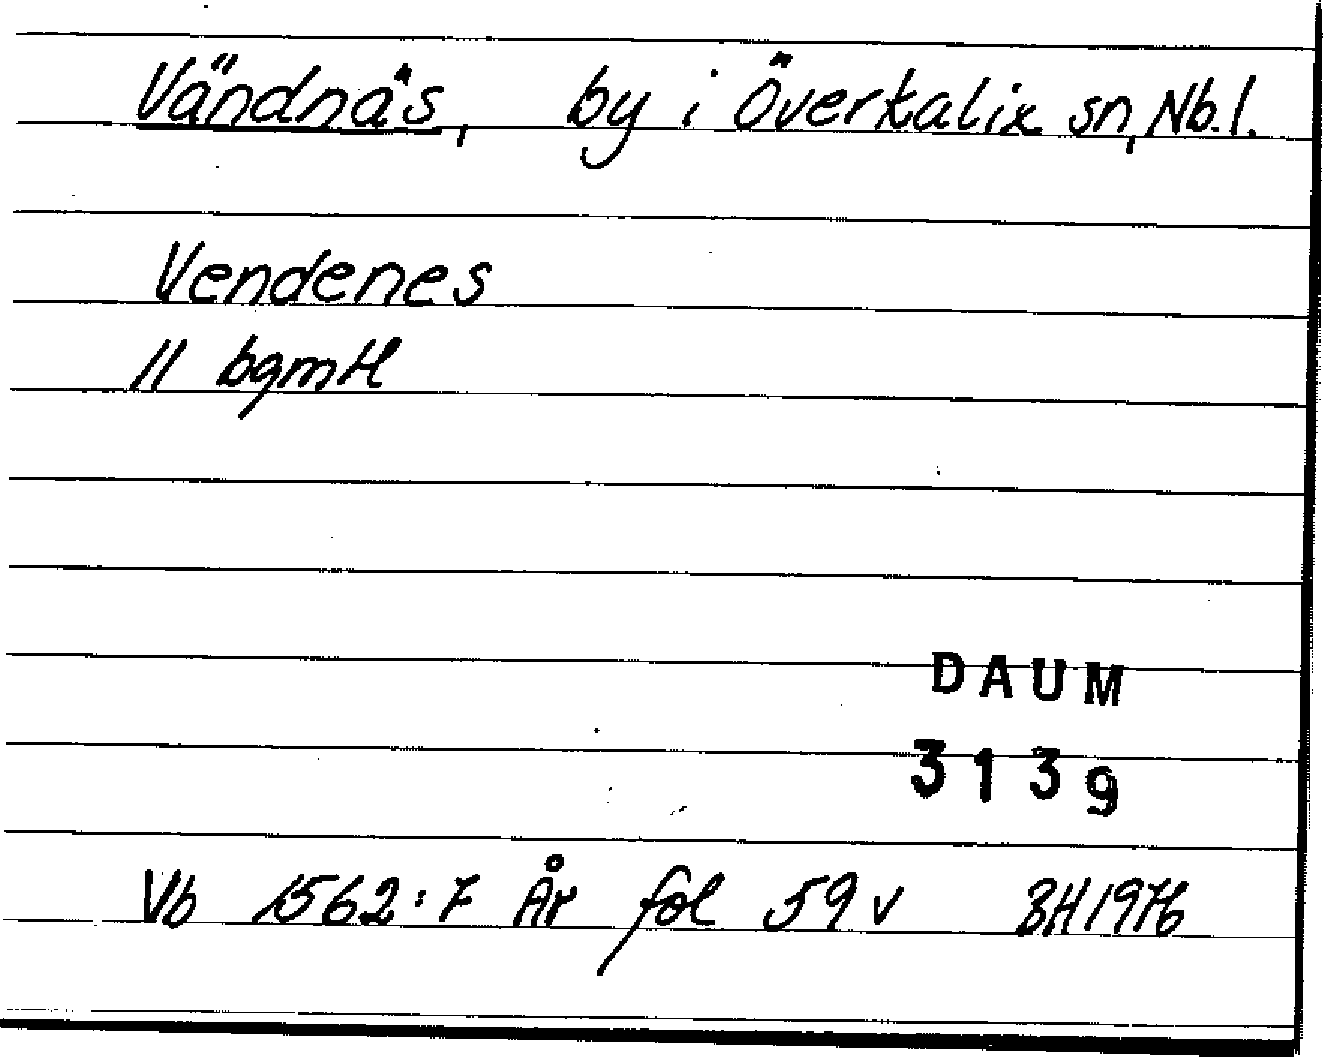 Vändnäs, by i Överkalix sn, Nb.l.
Vendenes
11 bgmtl
DAUM
3139
Vb 1562:7 År fol 59 v BH 1976